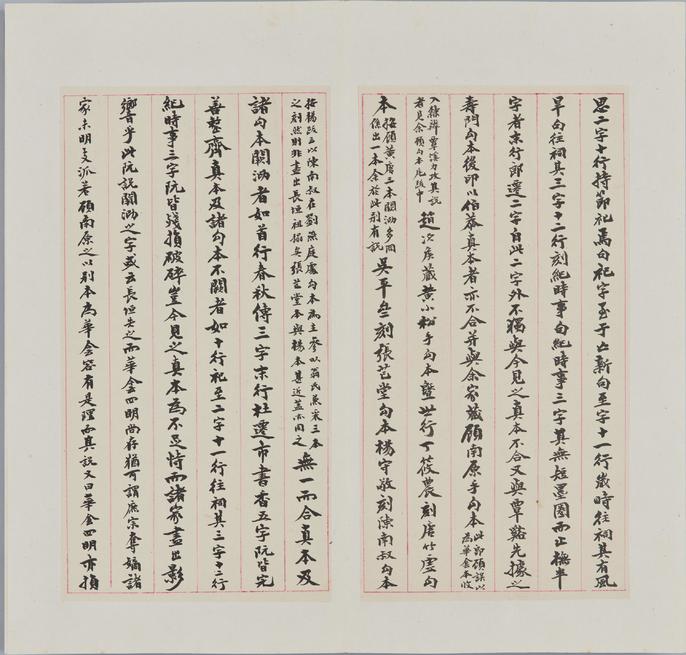 思二字十行持節祀焉句祀字至于亡新句至字十一行歲時往祠其有風
旱句往祠其三字十二行刻紀時事句紀時事三字莫無短墨圈而止橅半
字者末行郎遷二字自此二字外不獨與今見之真本不合又與覃谿先據之
壽門句本後即以伯恭真本者亦不合并與余家藏顧南原手句本此即顧誤以
為華會本收
入隸辨覃溪力攻其說
者見余顧句本凡跋中
趙次矦藏黃小松手句本暨世行丁筱農刻唐竹虛句
本按顧黃唐三本闕泐多同
係出一本余於此別有說
吳平叄刻張芑堂句本楊守敬刻陳南叔句本
按楊跋云以陳南叔在劉燕庭處句本為主參以翁氏兼采三本
之刻然則非盡出長垣祖搨矣張芑堂本與楊本甚近蓋亦同之
無一而合真本及
諸句本闕泐者如首行春秋傳三字末行杜遷市書香五字阮皆完
善整齊真本及諸句本不闕者如十行祀至二字十一行往祠其三字十二行
紀時事三字阮皆殘損破碎豈今見之真本為不足恃而諸家盡出影
嚮乎此阮說闕泐之字或云長垣失之而華會四明尚存猶可謂庶宗奪嫡諸
家未明支派若顧南原之以別本為華會容有是理而其說又曰華會四明亦損